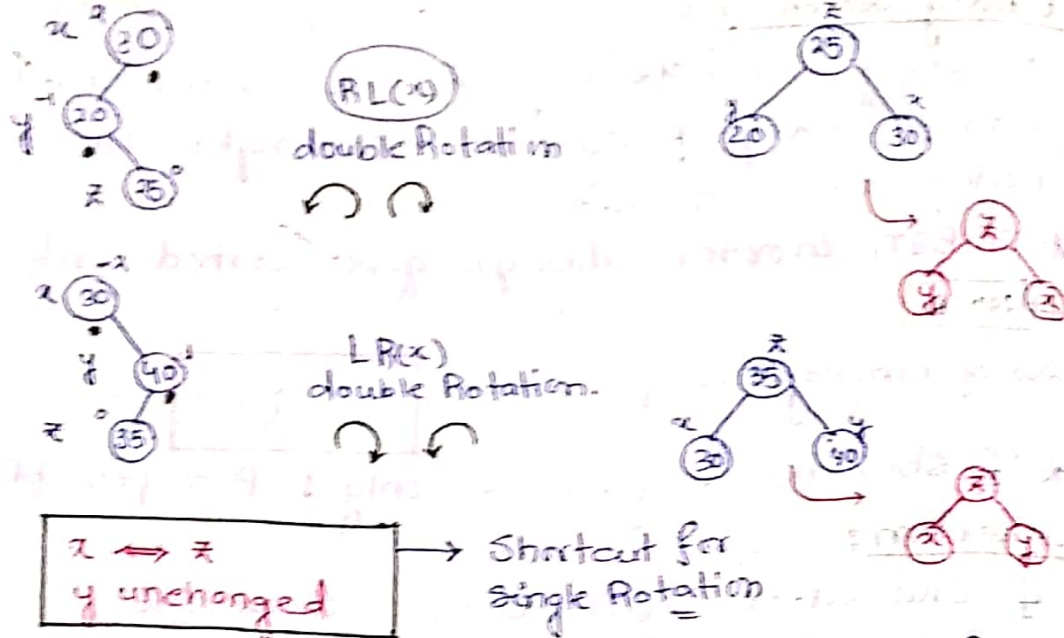 x 2
30
y -1
20
z 25 0
RL(x)
double Rotation
z
25
y x
20 30
z
y x
-2
x 30
y 40 1
z 0 35
LR(x)
double Rotation.
z
35
x y
30 40
z
x y
x ⟺ z
y unchanged
→ Shortcut for
single Rotation